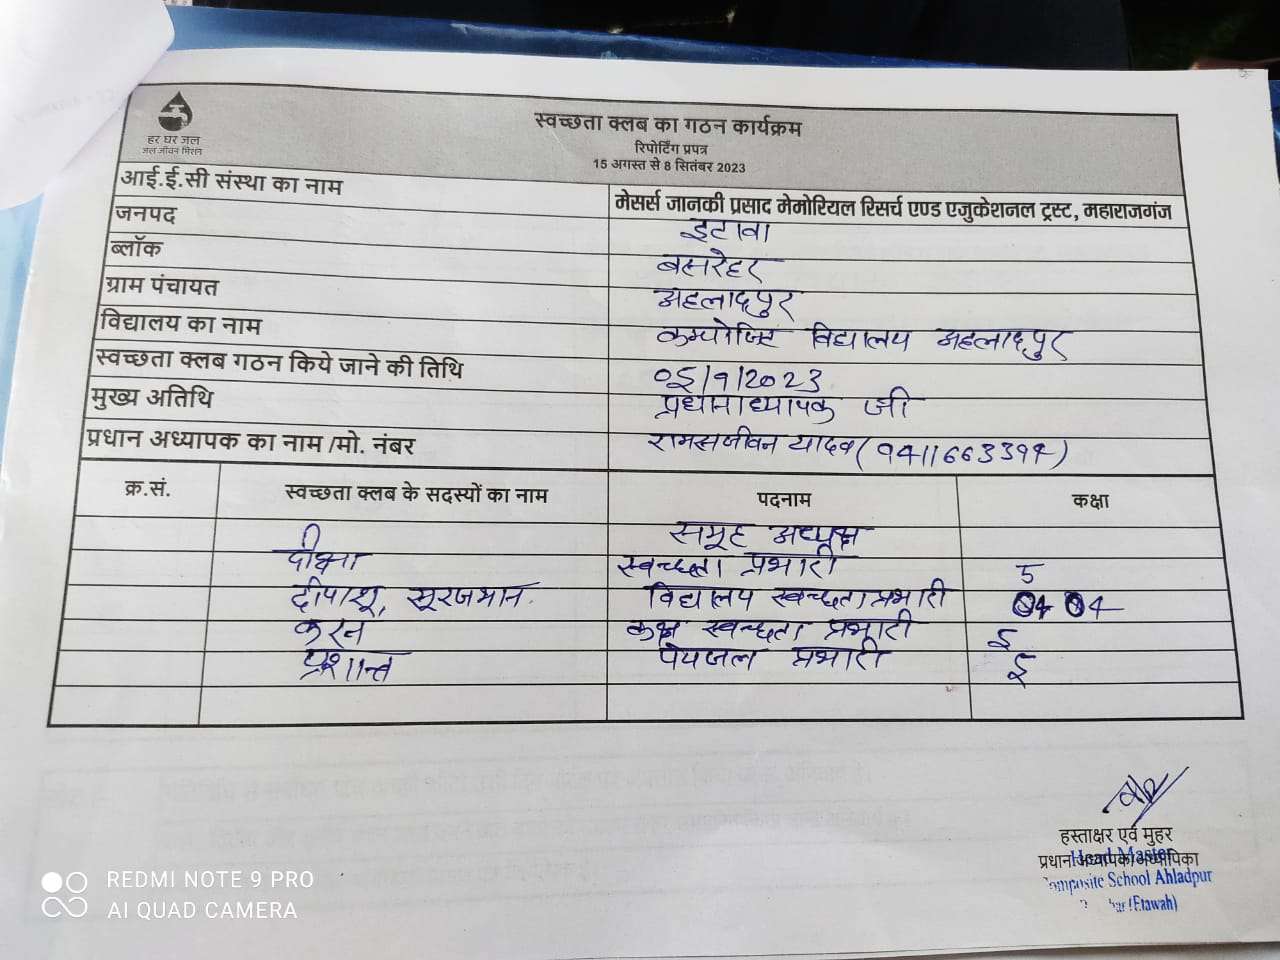 हर घर जल
जल जीवन मिशन
स्वच्छता क्लब का गठन कार्यक्रम
रिपोर्टिंग प्रपत्र
15 अगस्त से 8 सितंबर 2023
आई.ई.सी संस्था का नाम मेसर्स जानकी प्रसाद मेमोरियल रिसर्च एण्ड एजुकेशनल ट्रस्ट, महाराजगंज
जनपद इटावा
ब्लॉक बसरेहर
ग्राम पंचायत अहलादपुर
विद्यालय का नाम कम्पोजिट विद्यालय अहलादपुर
स्वच्छता क्लब गठन किये जाने की तिथि 05/9/2023
मुख्य अतिथि प्रधानाध्यापक जी
प्रधान अध्यापक का नाम /मो. नंबर रामसजीवन यादव
क्र.सं. स्वच्छता क्लब के सदस्यों का नाम पदनाम कक्षा
समूह अध्यक्ष
दीक्षा स्वच्छता प्रभारी 5
दीपांशू, सूरजभान. विद्यालय स्वच्छता प्रभारी 04 04
करन कक्ष स्वच्छता प्रभारी 5
प्रशान्त पेयजल प्रभारी 5
हस्ताक्षर एवं मुहर
प्रधान अध्यापक/अध्यापिका
Head Master
Composite School Ahladpur
(Etawah)
REDMI NOTE 9 PRO
AI QUAD CAMERA